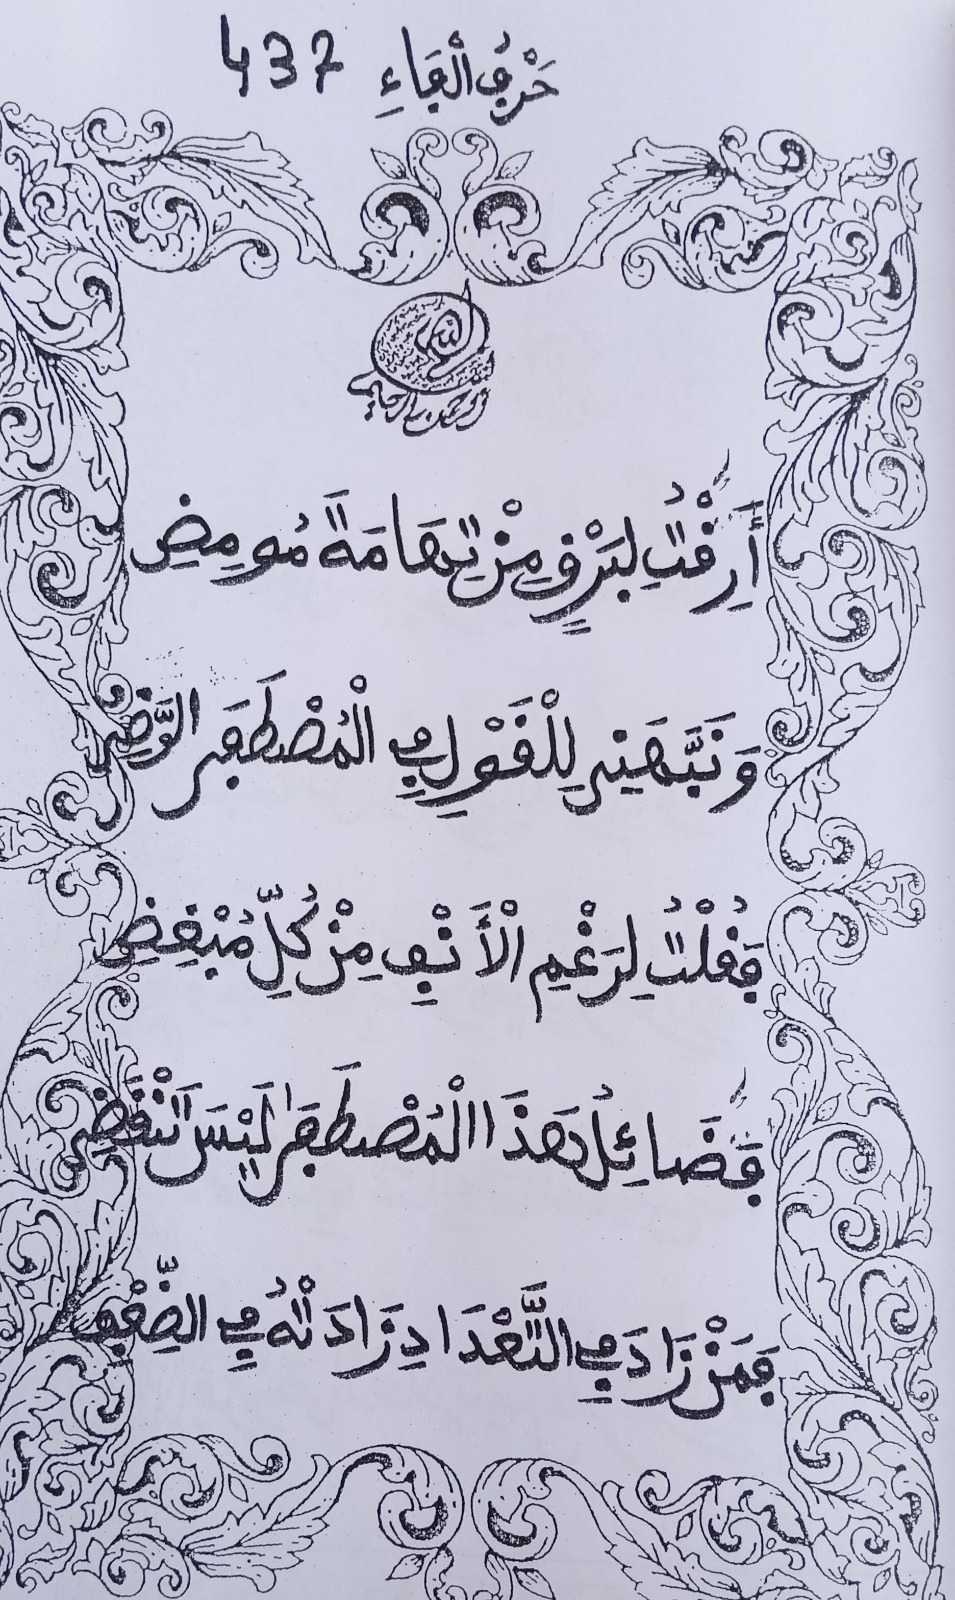 حَرْفُ الْفَاءِ 437
أَرِقْتُ لِبَرْقٍ مِنْ تِهَامَةَ مُومِضِ
وَنَبَّهَنِي لِلْقَوْلِ فِي الْمُصْطَفَى الْوَضِي
فَقُلْتُ لِرَغْمِ الْأَنْفِ مِنْ كُلِّ مُبْغِضِ
فَضَائِلُ هَذَا الْمُصْطَفَى لَيْسَ تَنْقَضِي
فَمَنْ زَادَ فِي التَّعْدَادِ زَادَتْهُ فِي الضِّعْفِ